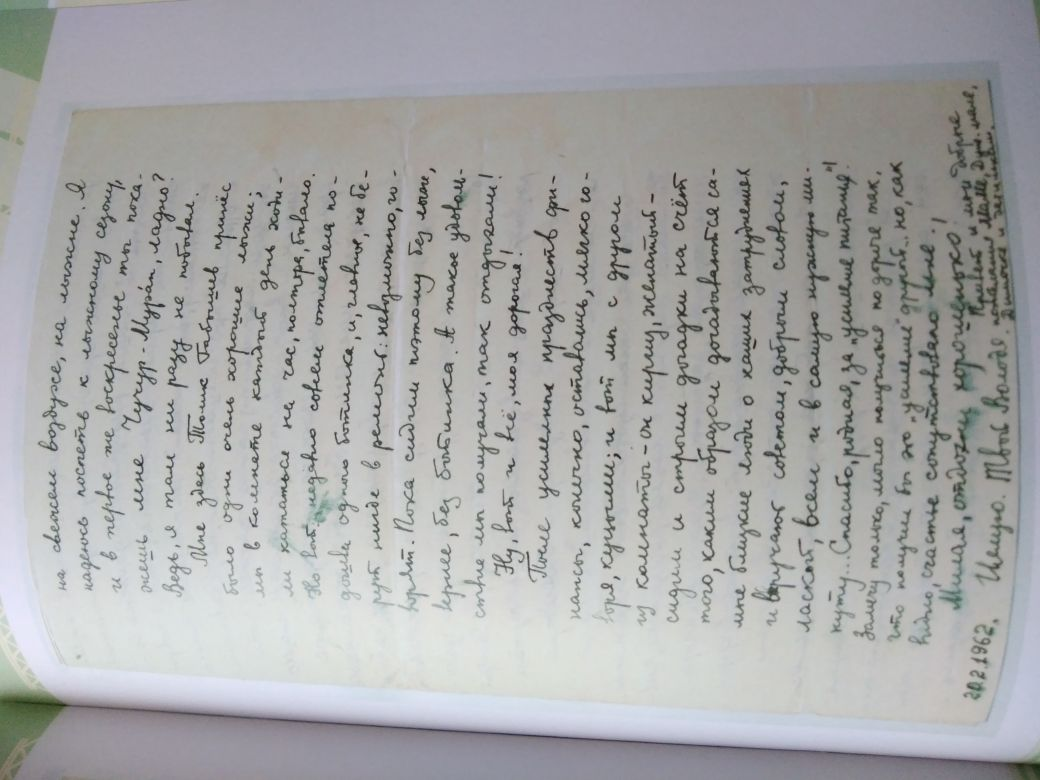 на свежем воздухе, на лыжне. Я
надеюсь поспеть к лыжному сезону,
и в первое же воскресенье ты пока-
жешь мне Чучур-Муран, ладно?
Ведь, я там ни разу не побывал.
Мне здесь Толик Габышев принёс
было одни очень хорошие лыжи;
мы в комнате каждый день ходи-
ли кататься на час, полтора, бывало.
Но вот недавно совсем отлетела по-
дошва одного ботинка, и, главное, не бе-
рут нигде в ремонт: невозможно, го-
ворят. Пока сидим поэтому без лыж,
вернее, без ботинка. А такое удоволь-
ствие мы получали, так отдыхали!
Ну, вот и всё, моя дорогая!
После усиленных празднеств фи-
нансы, конечно, остались, мягко го-
воря, скучными; и вот мы с другом
из комнаты - он киргиз, женатый -
сидим и строим догадки на счёт
того, каким образом догадываются са-
мые близкие люди о наших затруднениях
и выручают советом, добрым словом,
лаской, всем и в самую нужную ми-
нуту... Спасибо, родная, за "усиление питания"!
Замечу только, мясо получилось по дороге так,
что получили бы это "усиление" другой... но, как
видно, счастье сопутствовало мне!
Милая, отдыхай хорошенько!
Привет и мои добрые
пожелания маме, Дуне, папе,
Димочке и
20.2.1962. Целую. Твой Володя